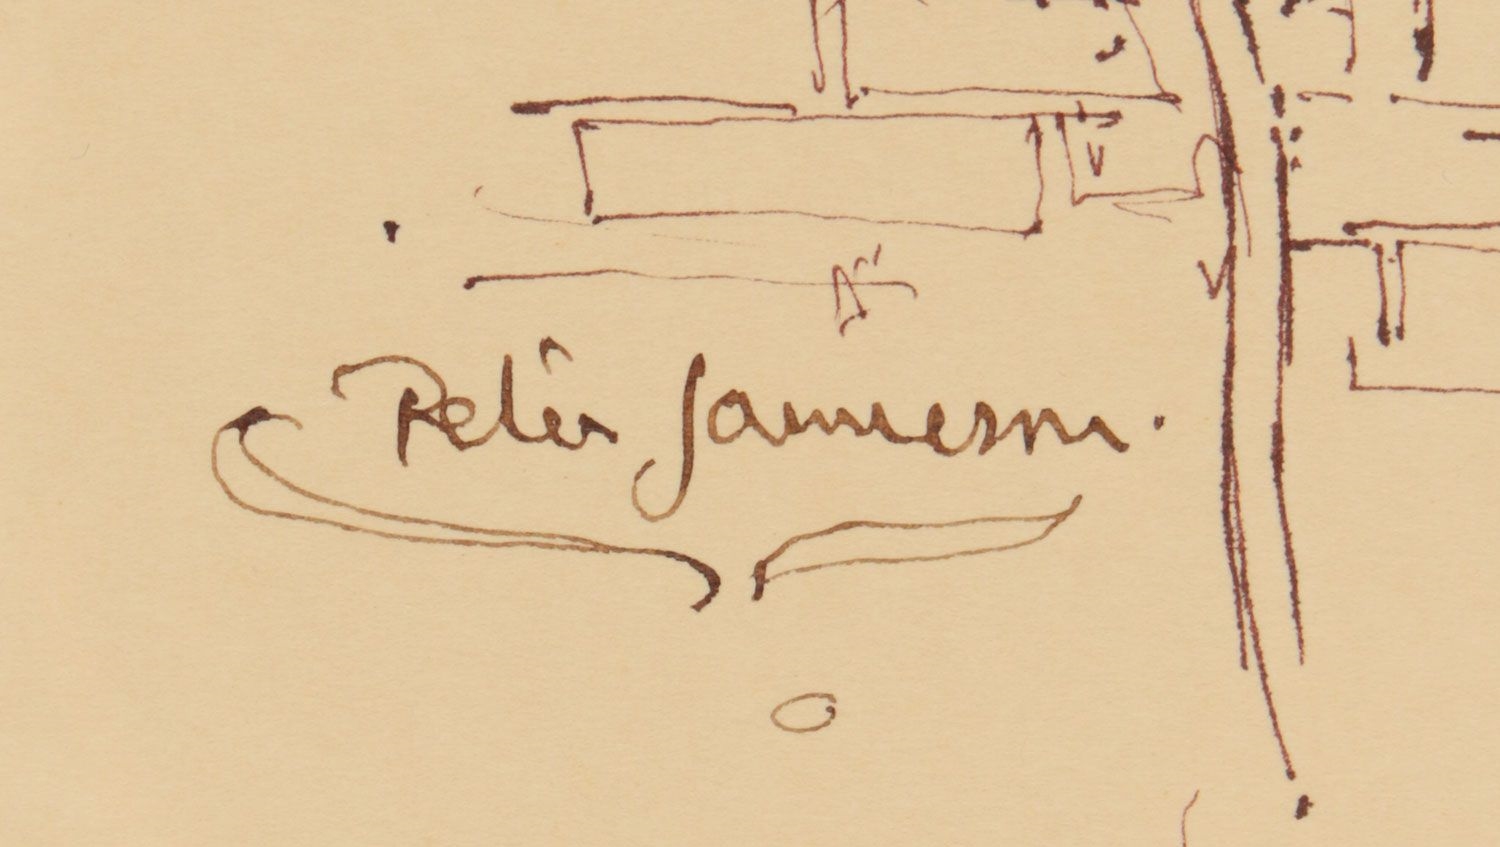 Peter Jamieson.